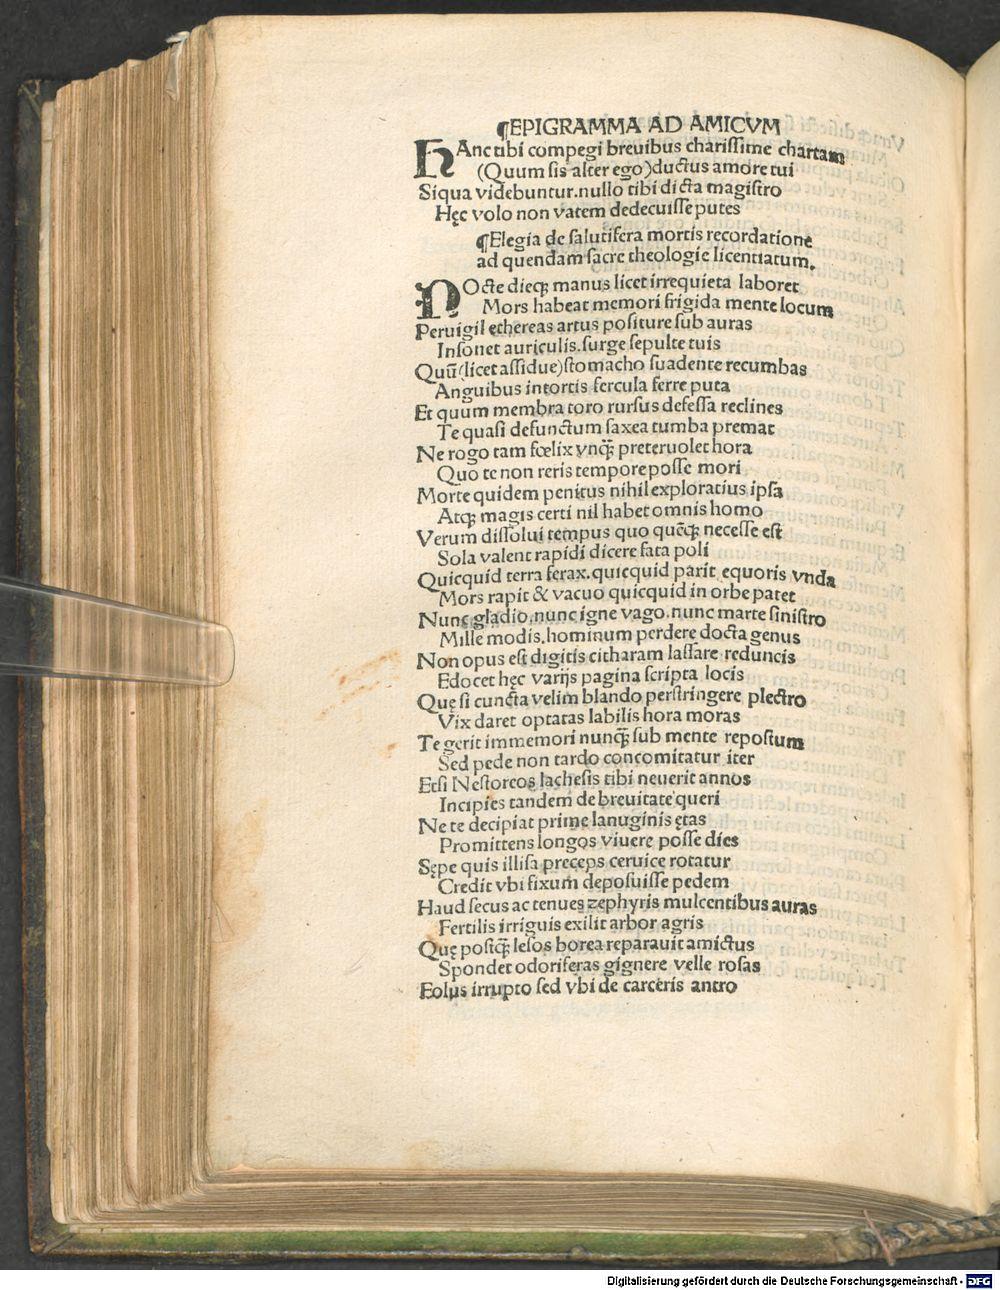 ¶EPIGRAMMA AD AMICVM
HAnc tibi compegi brevibus charissime chartam
(Quum sis alter ego) ductus amore tui
Siqua videbuntur. nullo tibi dicta magistro
Hęc volo non vatem dedecuisse putes
¶Elegia de salutifera mortis recordatione
ad quendam sacre theologie licentiatum.
NOcte dieq; manus licet irrequieta laboret
Mors habeat memori frigida mente locum
Peruigil ethereas artus positure sub auras
Insonet auriculis. surge sepulte tuis
Quū (licet assidue) stomacho suadente recumbas
Anguibus intortis fercula ferre puta
Et quum membra toro rursus defessa reclines
Te quasi defunctum saxea tumba premat
Ne rogo tam fœlix vnq̃; preteruolet hora
Quo te non reris tempore posse mori
Morte quidem penitus nihil exploratius ipsa
Atq; magis certi nil habet omnis homo
Verum dissolui tempus quo quēq; necesse est
Sola valent rapidi dicere fata poli
Quicquid terra ferax. quicquid parit equoris vnda
Mors rapit & vacuo quicquid in orbe patet
Nunc gladio. nunc igne vago. nunc marte sinistro
Mille modis. hominum perdere docta genus
Non opus est digitis citharam lassare reduncis
Edocet hęc varijs pagina scripta locis
Quę si cuncta velim blando perstringere plectro
Vix daret optatas labilis hora moras
Te gerit immemori nunq̃; sub mente repostum
Sed pede non tardo concomitatur iter
Etsi Nestoreos lachesis tibi neuerit annos
Incipies tandem de breuitate queri
Ne te decipiat prime lanuginis ętas
Promittens longos viuere posse dies
Sępe quis illisa preceps ceruice rotatur
Credit vbi fixum deposuisse pedem
Haud secus ac tenues zephyris mulcentibus auras
Fertilis irriguis exilit arbor agris
Quę postq̃; lesos borea reparauit amictus
Spondet odoriferas gignere velle rosas
Eolus irrupto sed vbi de carceris antro
Digitalisierung gefördert durch die Deutsche Forschungsgemeinschaft - DFG